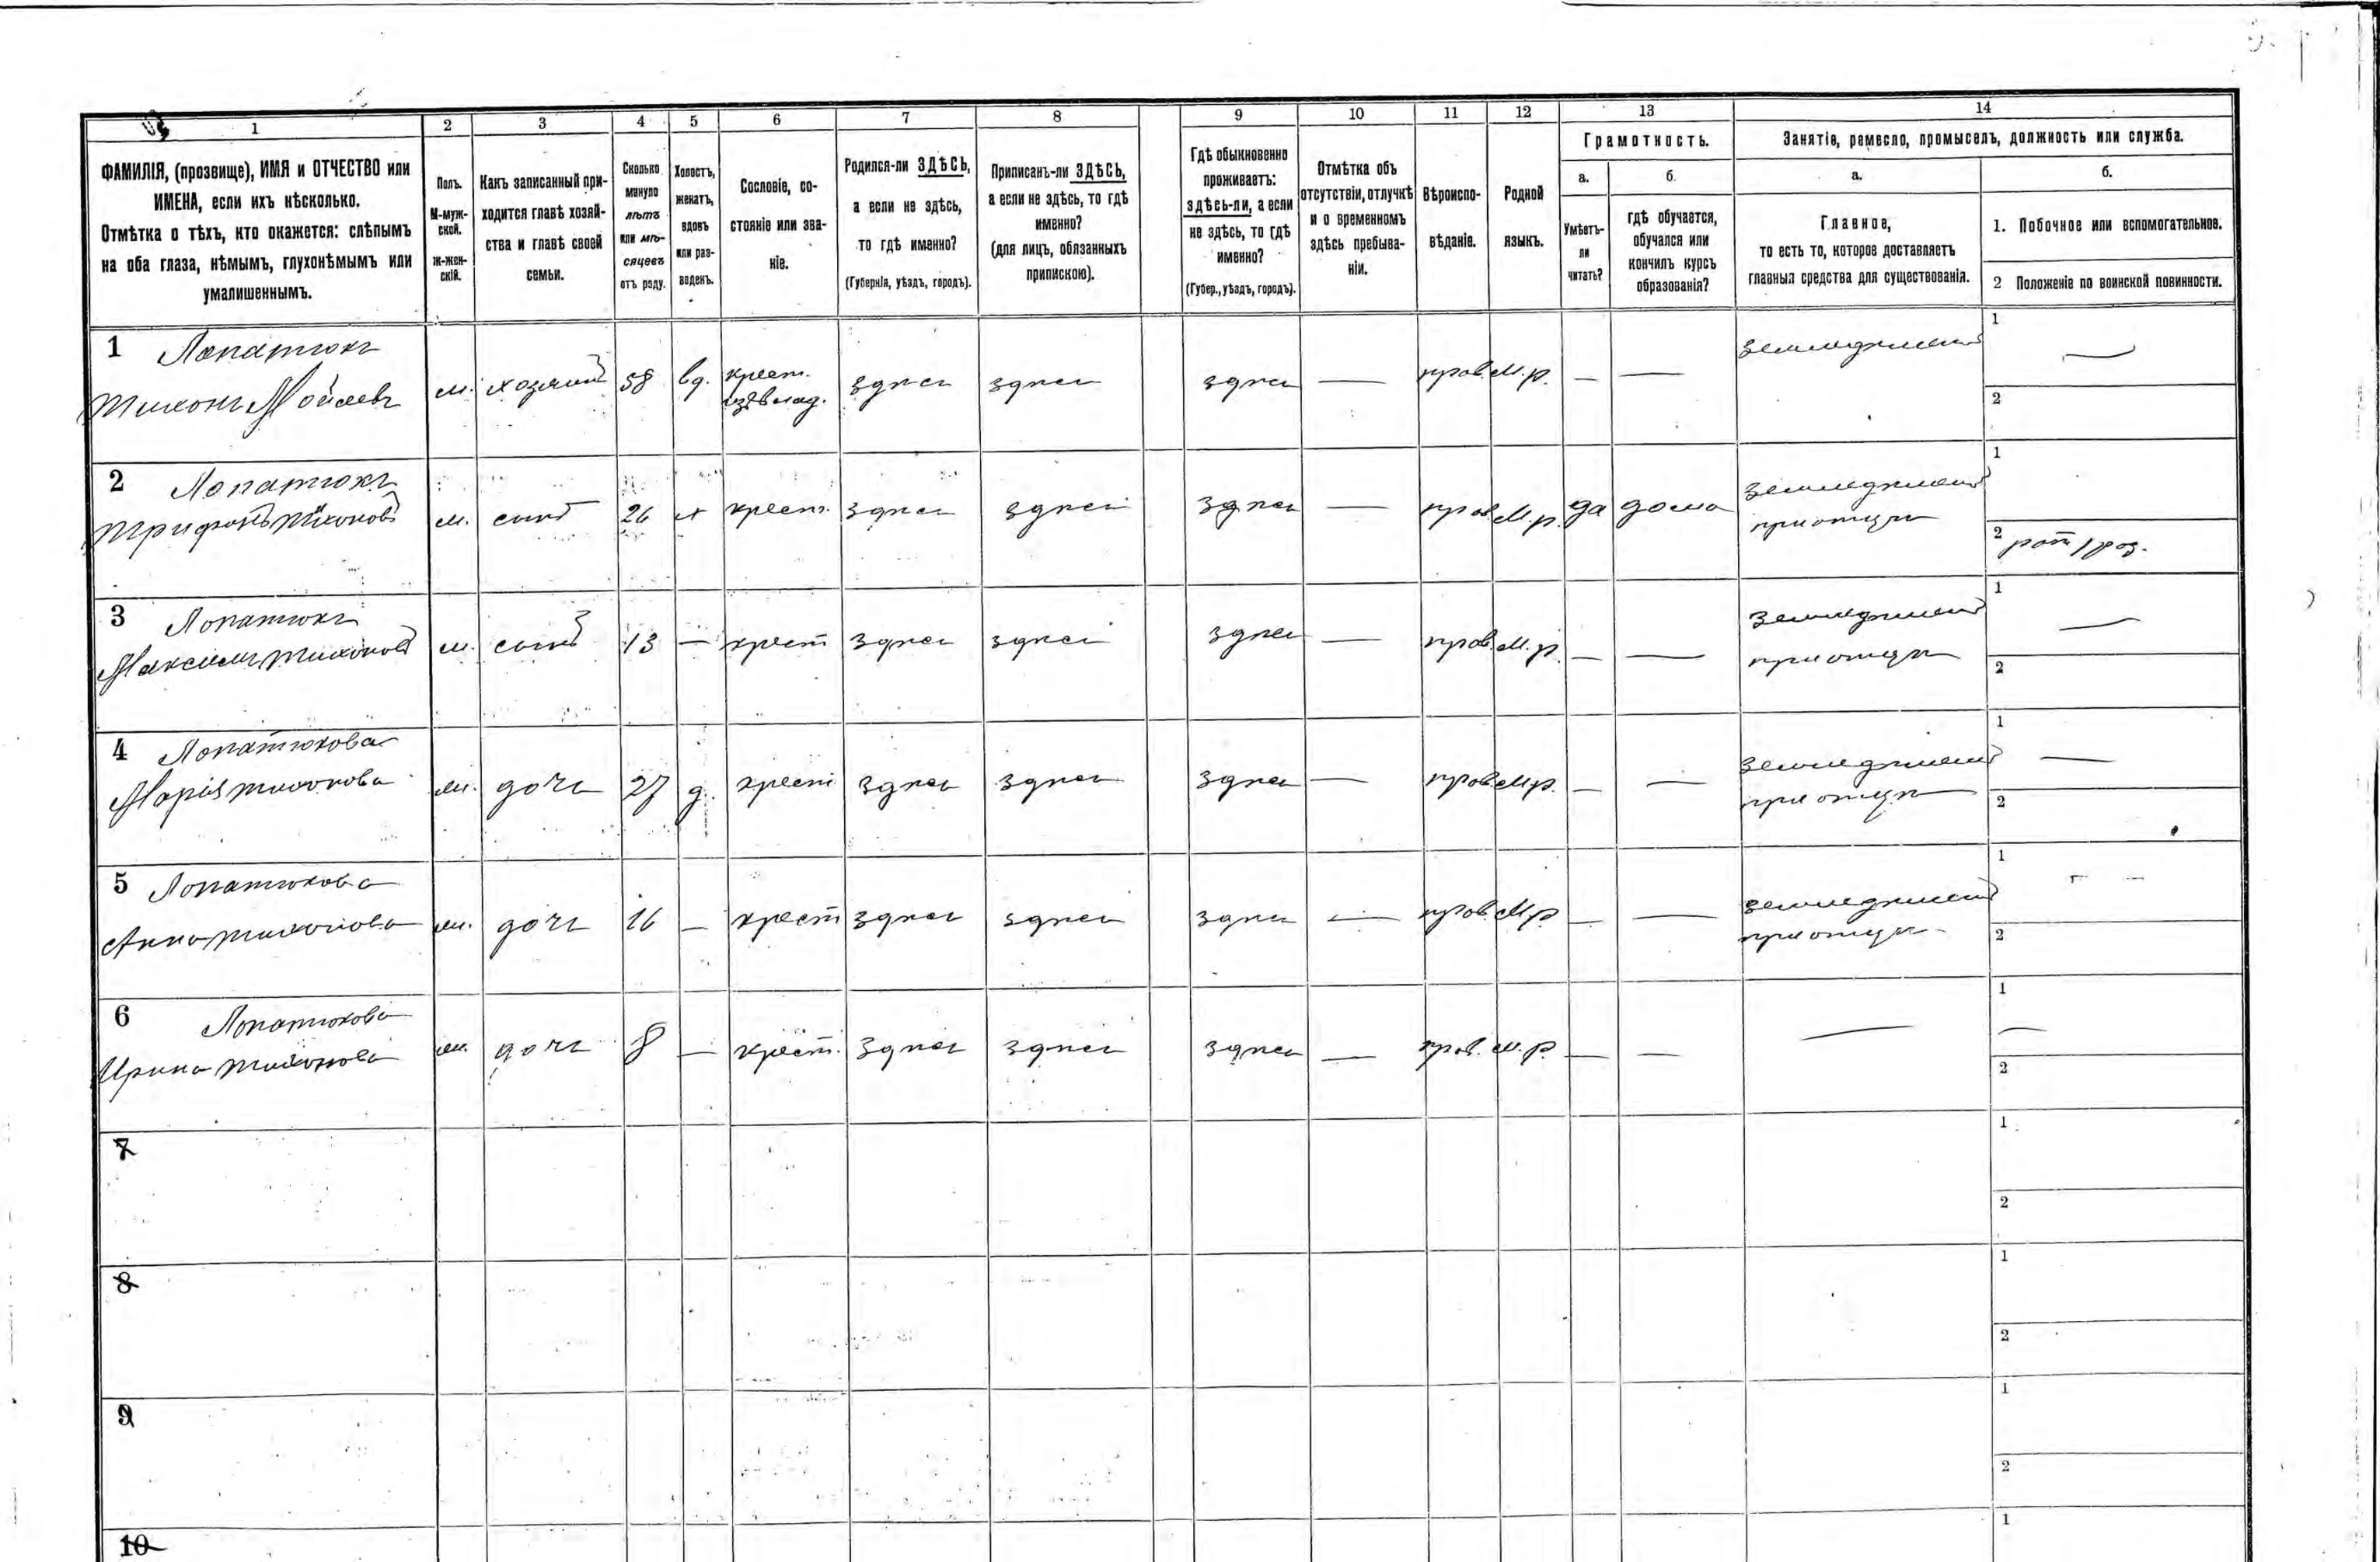 1 2 3 4 5 6 7 8 9 10 11 12 13 14
ФАМИЛІЯ, (прозвище), ИМЯ и ОТЧЕСТВО или
ИМЕНА, если ихъ нѣсколько.
Отмѣтка о тѣхъ, кто окажется: слѣпымъ
на оба глаза, нѣмымъ, глухонѣмымъ или
умалишеннымъ.
Полъ.
М-муж-
ской.
ж-жен-
скій.
Какъ записанный при-
ходится главѣ хозяй-
ства и главѣ своей
семьи.
Сколько
минуло
лѣтъ
или мѣ-
сяцевъ
отъ роду.
Холостъ,
женатъ,
вдовъ
или раз-
веденъ.
Сословіе, со-
стояніе или зва-
ніе.
Родился-ли ЗДѢСЬ,
а если не здѣсь,
то гдѣ именно?
(Губернія, уѣздъ, городъ).
Приписанъ-ли ЗДѢСЬ,
а если не здѣсь, то гдѣ
именно?
(для лицъ, обязанныхъ
припискою).
Гдѣ обыкновенно
проживаетъ:
здѣсь-ли, а если
не здѣсь, то гдѣ
именно?
(Губер., уѣздъ, городъ).
Отмѣтка объ
отсутствіи, отлучкѣ
и о временномъ
здѣсь пребыва-
ніи.
Вѣроиспо-
вѣданіе.
Родной
языкъ.
Грамотность.
а. б.
Умѣетъ-
ли
читать?
гдѣ обучается,
обучался или
кончилъ курсъ
образованія?
Занятіе, ремесло, промыселъ, должность или служба.
а. б.
Главное,
то есть то, которое доставляетъ
главныя средства для существованія.
1. Побочное или вспомогательное.
2 Положеніе по воинской повинности.
1 Лопатюкъ земледѣліе 1 —
Тихонъ Мойсеевъ м. хозяинъ 58 вд. крест. здѣсь здѣсь здѣсь — прав. м.р. — — 2
2 Лопатюкъ земледѣліе 1
Трифонъ Тихоновъ м. сынъ 26 х крест. здѣсь здѣсь здѣсь — прав. м.р. да дома при отцѣ 2
3 Лопатюкъ земледѣліе 1 —
Максимъ Тихоновъ м. сынъ 13 — крест здѣсь здѣсь здѣсь — прав. м.р. — — при отцѣ 2
4 Лопатюкова земледѣліе 1 —
Марія Тихонова ж. дочь 27 д. крест здѣсь здѣсь здѣсь — прав. м.р. — — при отцѣ 2
5 Лопатюкова земледѣліе 1 —
Анна Тихонова ж. дочь 16 — крест здѣсь здѣсь здѣсь — прав. м.р. — — при отцѣ 2
6 Лопатюкова 1 —
Ирина Тихонова ж. дочь 8 — крест. здѣсь здѣсь здѣсь — прав. м.р. — — — 2
7 1
2
8 1
2
9 1
2
10 1